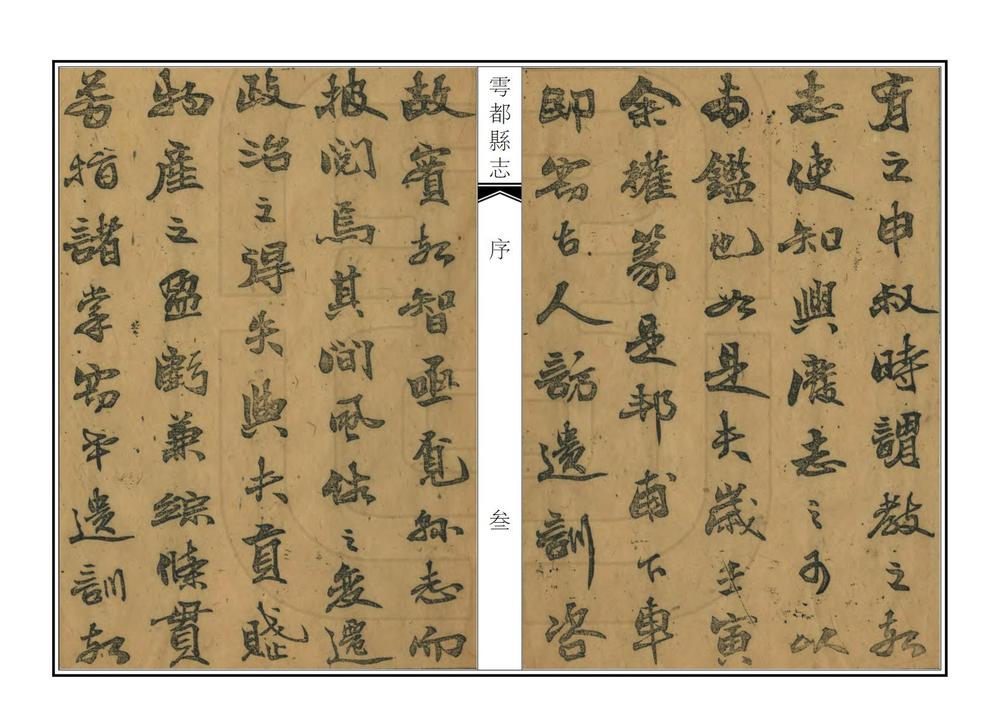 有之申叔時謂教之於
志使知興廢志之可以
鑑也如是夫歲壬寅
余權篆是邦甫下車
即竊古人訪遺訓咨
雩都縣志
序
叁
故實於智亟覓縣志而
披閱焉其間風俗之變遷
政治之得失與夫貢賦
物產之盈虧兼綜條貫
若指諸掌竊幸遺訓於